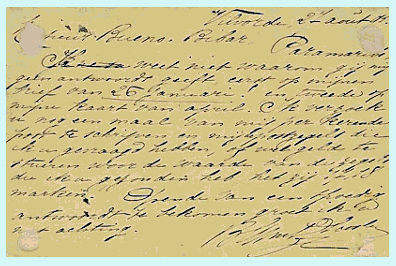 Vilvorde 2 août
Bueno. Bibaz.
Paramaribo
weet niet waarom gij mij
geen antwoordt geeft eerst op mijnen
brief van 26 Januari en tweede op
mijne kaart van april. Ik verzoek
u nog een maal van mij per keerende
post te schrijven en mij postzegels die
ik u gevraagd hebben, of wel geld te
stueren voor de waarde van de zegels
die ik u gezonden heb
marken. van een spoedig
antwoordt te bekomen groet ik u
met achting.